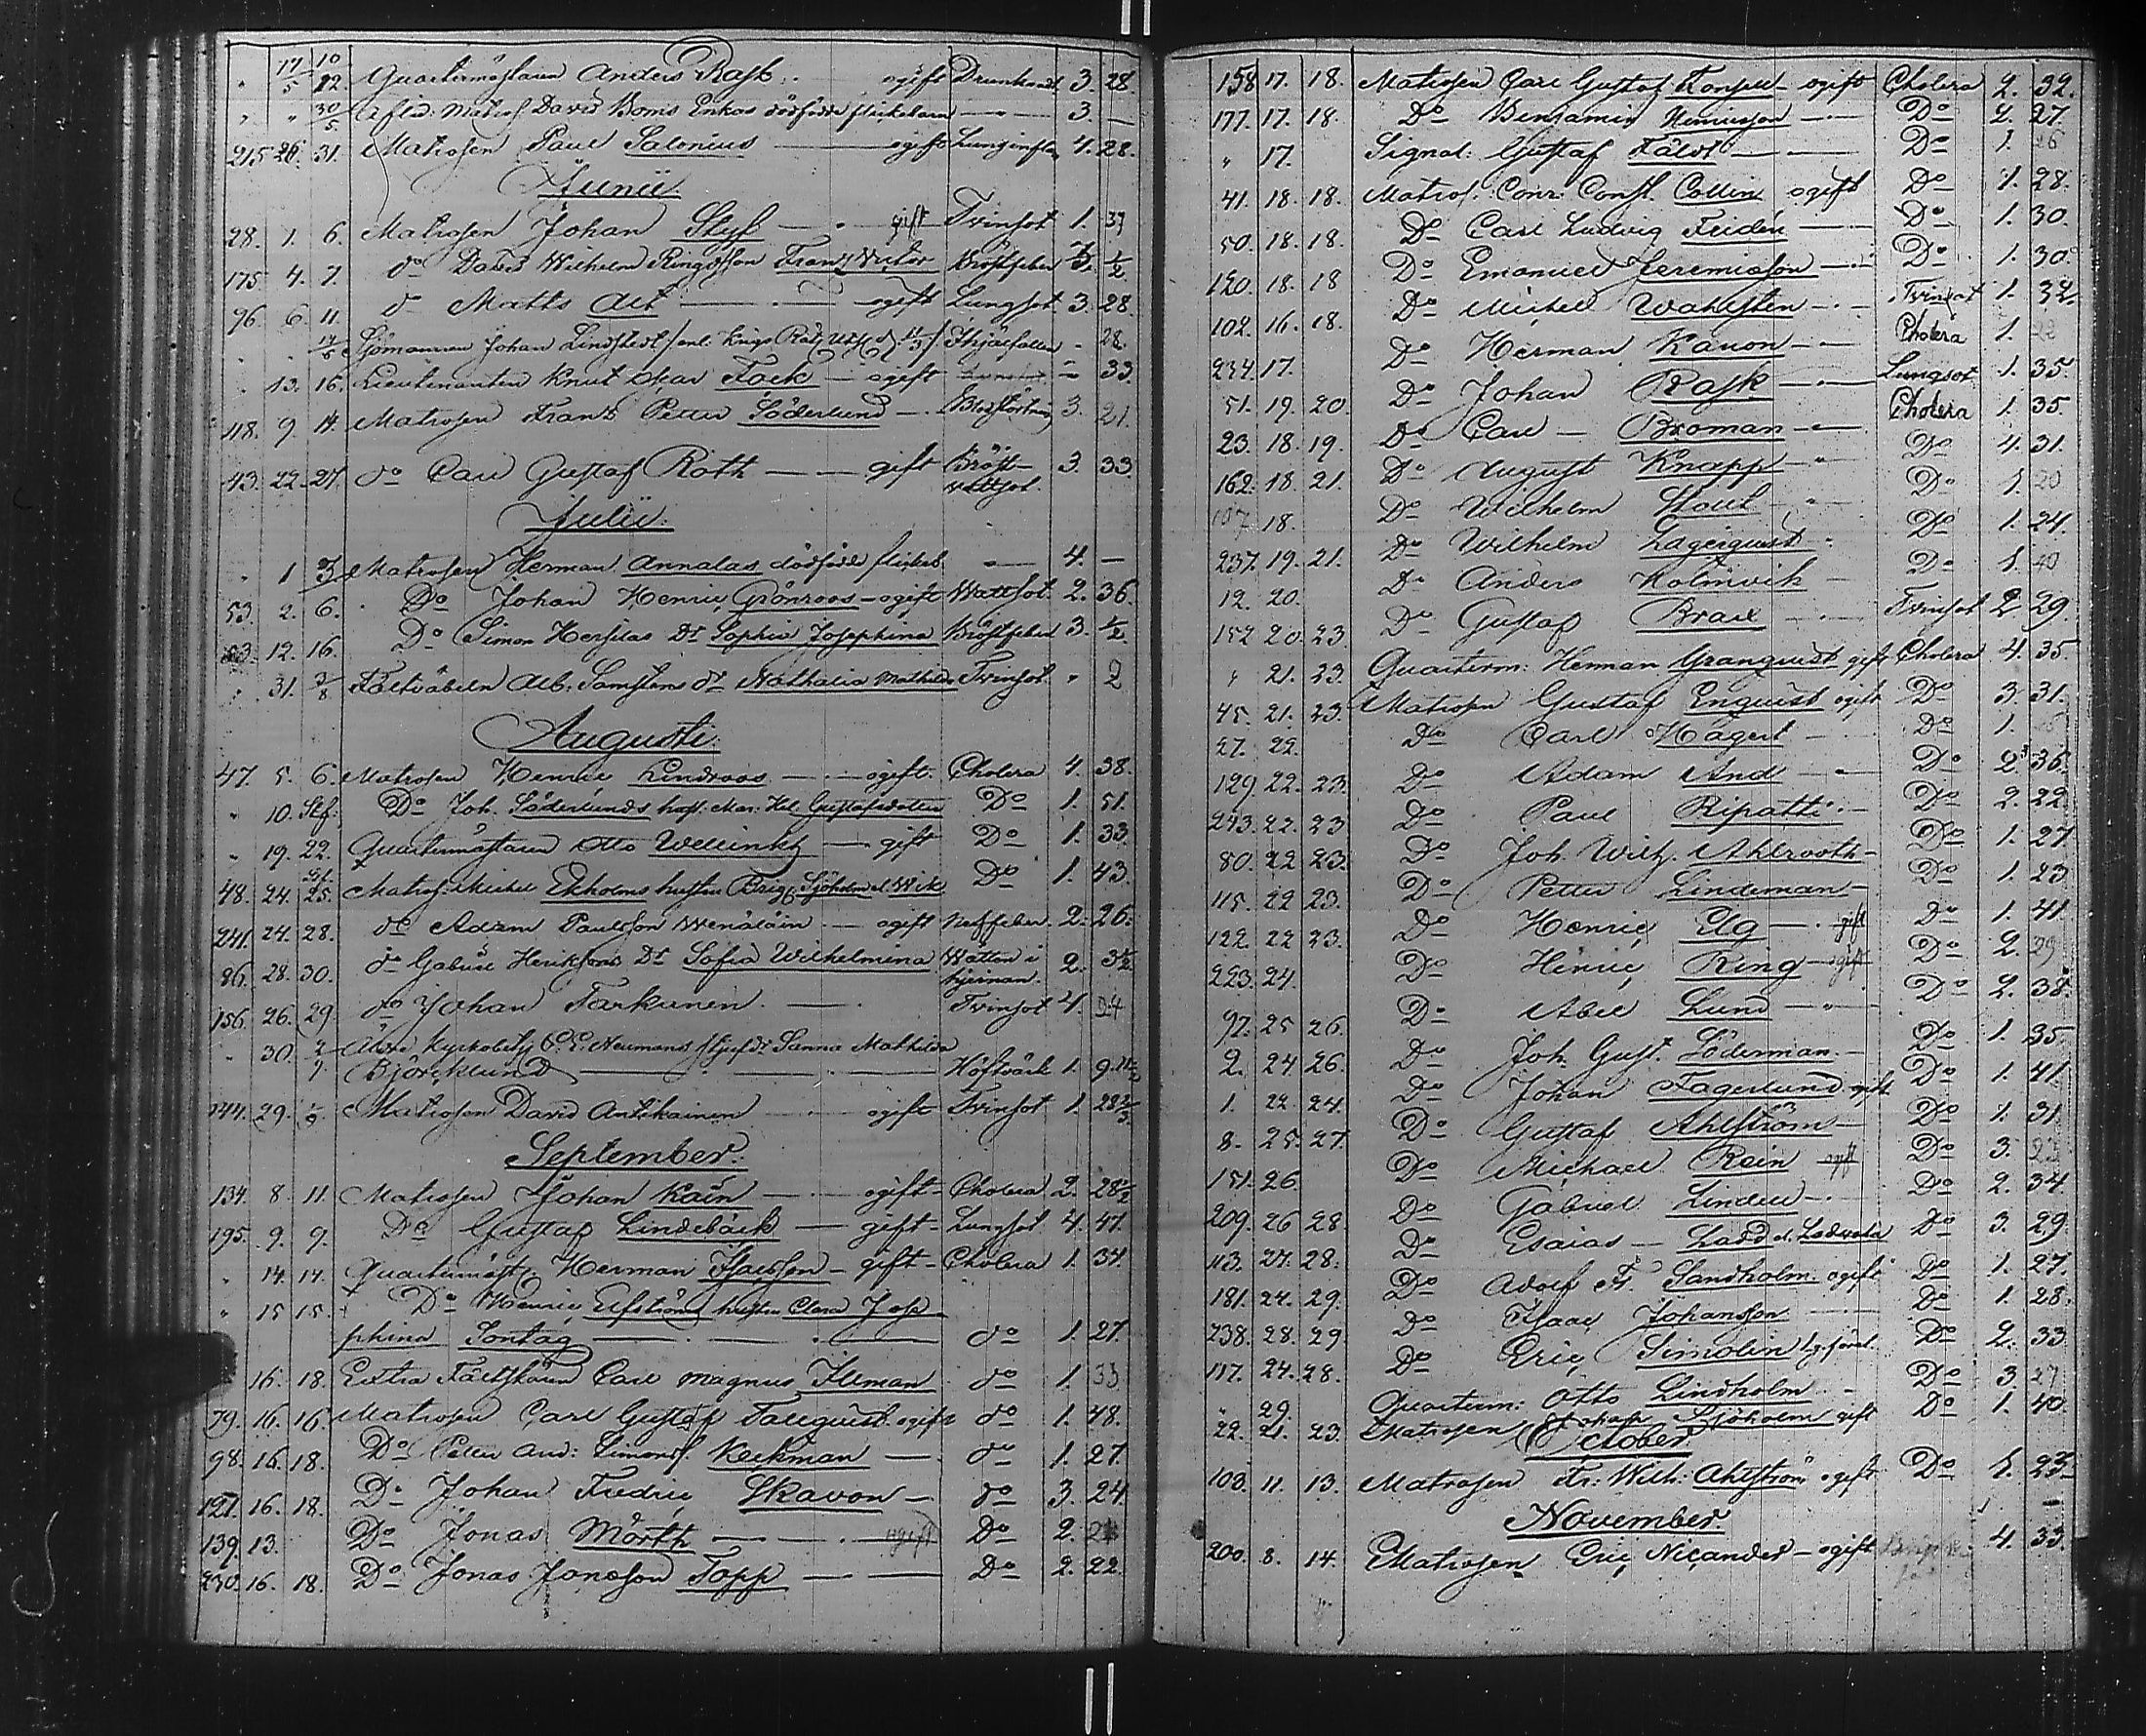 17/5 10/22 Quartermästaren Anders Rask ogift Drunknat 3. 28.
30/5 Aflid: Matros David Boms Enkas dödfödde flickebarn 3. —
215 26. 31. Matrosen Paul Salonius ogift Lunginfl. 4. 28.
Junii
28. 1. 6. Matrosen Johan Styf gift Tvinsot 1. 37
175 4. 7. do David Wilhelm Ringdsson Frans Victor Bröstfeber 3. 1/2
96. 6. 11. do Matts Alt ogift Lungsot 3. 28
Sjömannen Johan Lindstedt Ihjälfallen 28.
13. 16. Lieutenanten Knut Oskar Fock ogift 33
118. 9. 14. Matrosen Frans Petter Söderlund Blodstörtning 3. 21.
43. 22. 27. do Carl Gustaf Roth gift Bröst- 3. 33
vattsot.
Julii.
1 3. Matrosen Herman Annalas dödfödde flickeb. 4. —
53. 2. 6. Do Johan Henric Grönroos ogift Wattsot 2. 36.
12. 16. Do Simon Dr Sophia Josephina Bröstfeber 3. 1/2
31. 3/8 Fältväbeln Alb. dr Nathalia Mathilda Tvinsot " 2
Augusti.
47. 5. 6. Matrosen Henric Lindroos ogift. Cholera 4. 38.
" 10. Do Joh. Söderlunds hust. Mar. Hel. Gustafsdotter Do 1. 51.
" 19. 22. Quartermästaren Otto gift Do 1. 33
48. 24. 25. Matros Michel Ekholms hustru Brig. Sjöholm el. Wik Do 1. 43.
241. 24. 28. do Adam Paulsson Wenäläin ogift Nerffeber. 2. 26.
86. 28. 30. do Gabriel Henrikssons Dr Sofia Wilhelmina Watten i 2. 3 1/2
hjernan.
156. 26. 29 do Johan Tarkunen Tvinsot 4. 24
" 30. 2/9 Äldre C. E. Neumans Sanna Mathilda
Björcklund Höftvärk 1. 9.
144. 29. 1/9. Matrosen David Antikainen ogift Tvinsot 1. 28 2/3
September.
134. 8. 11. Matrosen Johan Kain ogift Cholera 2. 28 1/2
195. 9. 9. Do Gustaf Lindebäck gift Lungsot 4. 47.
" 14. 14. Quartermäst. Herman Isacsson gift Cholera 1. 34.
" 15 15. Do Henric Elfströms hustru Clara Jose
phina Sontag do 1. 27.
16. 18. Extra Fältskären Carl Magnus Ileman do 1. 33
79. 16. 16. Matrosen Carl Gustaf Tallquist ogift do 1. 48.
98. 16. 18. Do Petter And: Simons. Keckman do 1. 27.
121. 16. 18. Do Johan Fredric Skavon do 3. 24.
139. 13. Do Jonas Mörth ogift Do 2.
230. 16. 18. Do Jonas Jonasson Topp Do 2. 22.
158 17. 18. Matrosen Carl Gustaf ogift Cholera 2. 32.
177. 17. 18. Do Benjamin Henricsson Do 2. 27.
" 17. Signal: Gustaf Fäldt Do 1. 26
41. 18. 18. Matros. Conr: Const. Collin ogift Do 1. 28.
50. 18. 18. Do Carl Ludvig Fridén Do 1. 30.
120. 18. 18 Do Emanuel Jeremiasson Do 1. 30.
102. 16. 18. Do Michel Wahlsten Tvinsot 1. 34.
234. 17. Do Herman Kanon Cholera 1. 22
51. 19. 20. Do Johan Rask Lungsot 1. 35.
23. 18. 19. Do Carl Broman Cholera 1. 35.
162. 18. 21. Do August Knapp Do 4. 31.
107. 18. Do Wilhelm Stout Do 1. 20
237. 19. 21. Do Wilhelm Lagerquist Do 1. 24.
12. 20. Do Anders Holmvik Do 1. 40
152 20. 23. Do Gustaf Brax Tvinsot 2 29.
" 21. 23. Quarterm: Herman Granquist gift Cholera 4. 35.
45. 21. 23. Matrosen Gustaf Enquist ogift Do 3. 31.
27. 22. Do Carl Hagert Do 1.
129. 22. 23. Do Adam And Do 2. 36.
243. 22. 23 Do Paul Ripatti Do 2. 22.
80. 22 23. Do Joh. Wilh. Ahlrooth Do 1. 27
115. 22 23. Do Petter Lindeman Do 1. 23
122. 22 23. Do Henric Elg gift Do 1. 41.
223. 24. Do Henric Ring ogift Do 2. 29
97. 25 26. Do Abel Lund Do 2. 38.
2. 24 26. Do Joh. Gust. Söderman Do 1. 35.
1. 22 24. Do Johan Fagerlund gift Do 1. 41.
8. 25. 27. Do Gustaf Ahlström Do 1. 31.
151. 26. Do Michael Rein ogift Do 3. 23
209. 26 28. Do Gabriel Lindell Do 2. 34
113. 27. 28. Do Esaias Ladd el. Ladvala Do 3. 29.
181. 24. 29. Do Adolf Fr. Sandholm ogift Do 1. 27.
238. 28. 29. Do Isaac Johansson Do 1. 28.
117. 24. 28. Do Eric Simolin Do 2. 33
" 29. Quarterm: Otto Lindholm Do 3 27
22. 21. 23. Matrosen Johan Sjöholm gift Do 1. 40.
October
103. 11. 13. Matrosen Fr: Wilh: Ahlström ogift Do 1. 25.
November.
200. 8. 14. Matrosen Eric Nicander ogift 4. 33.